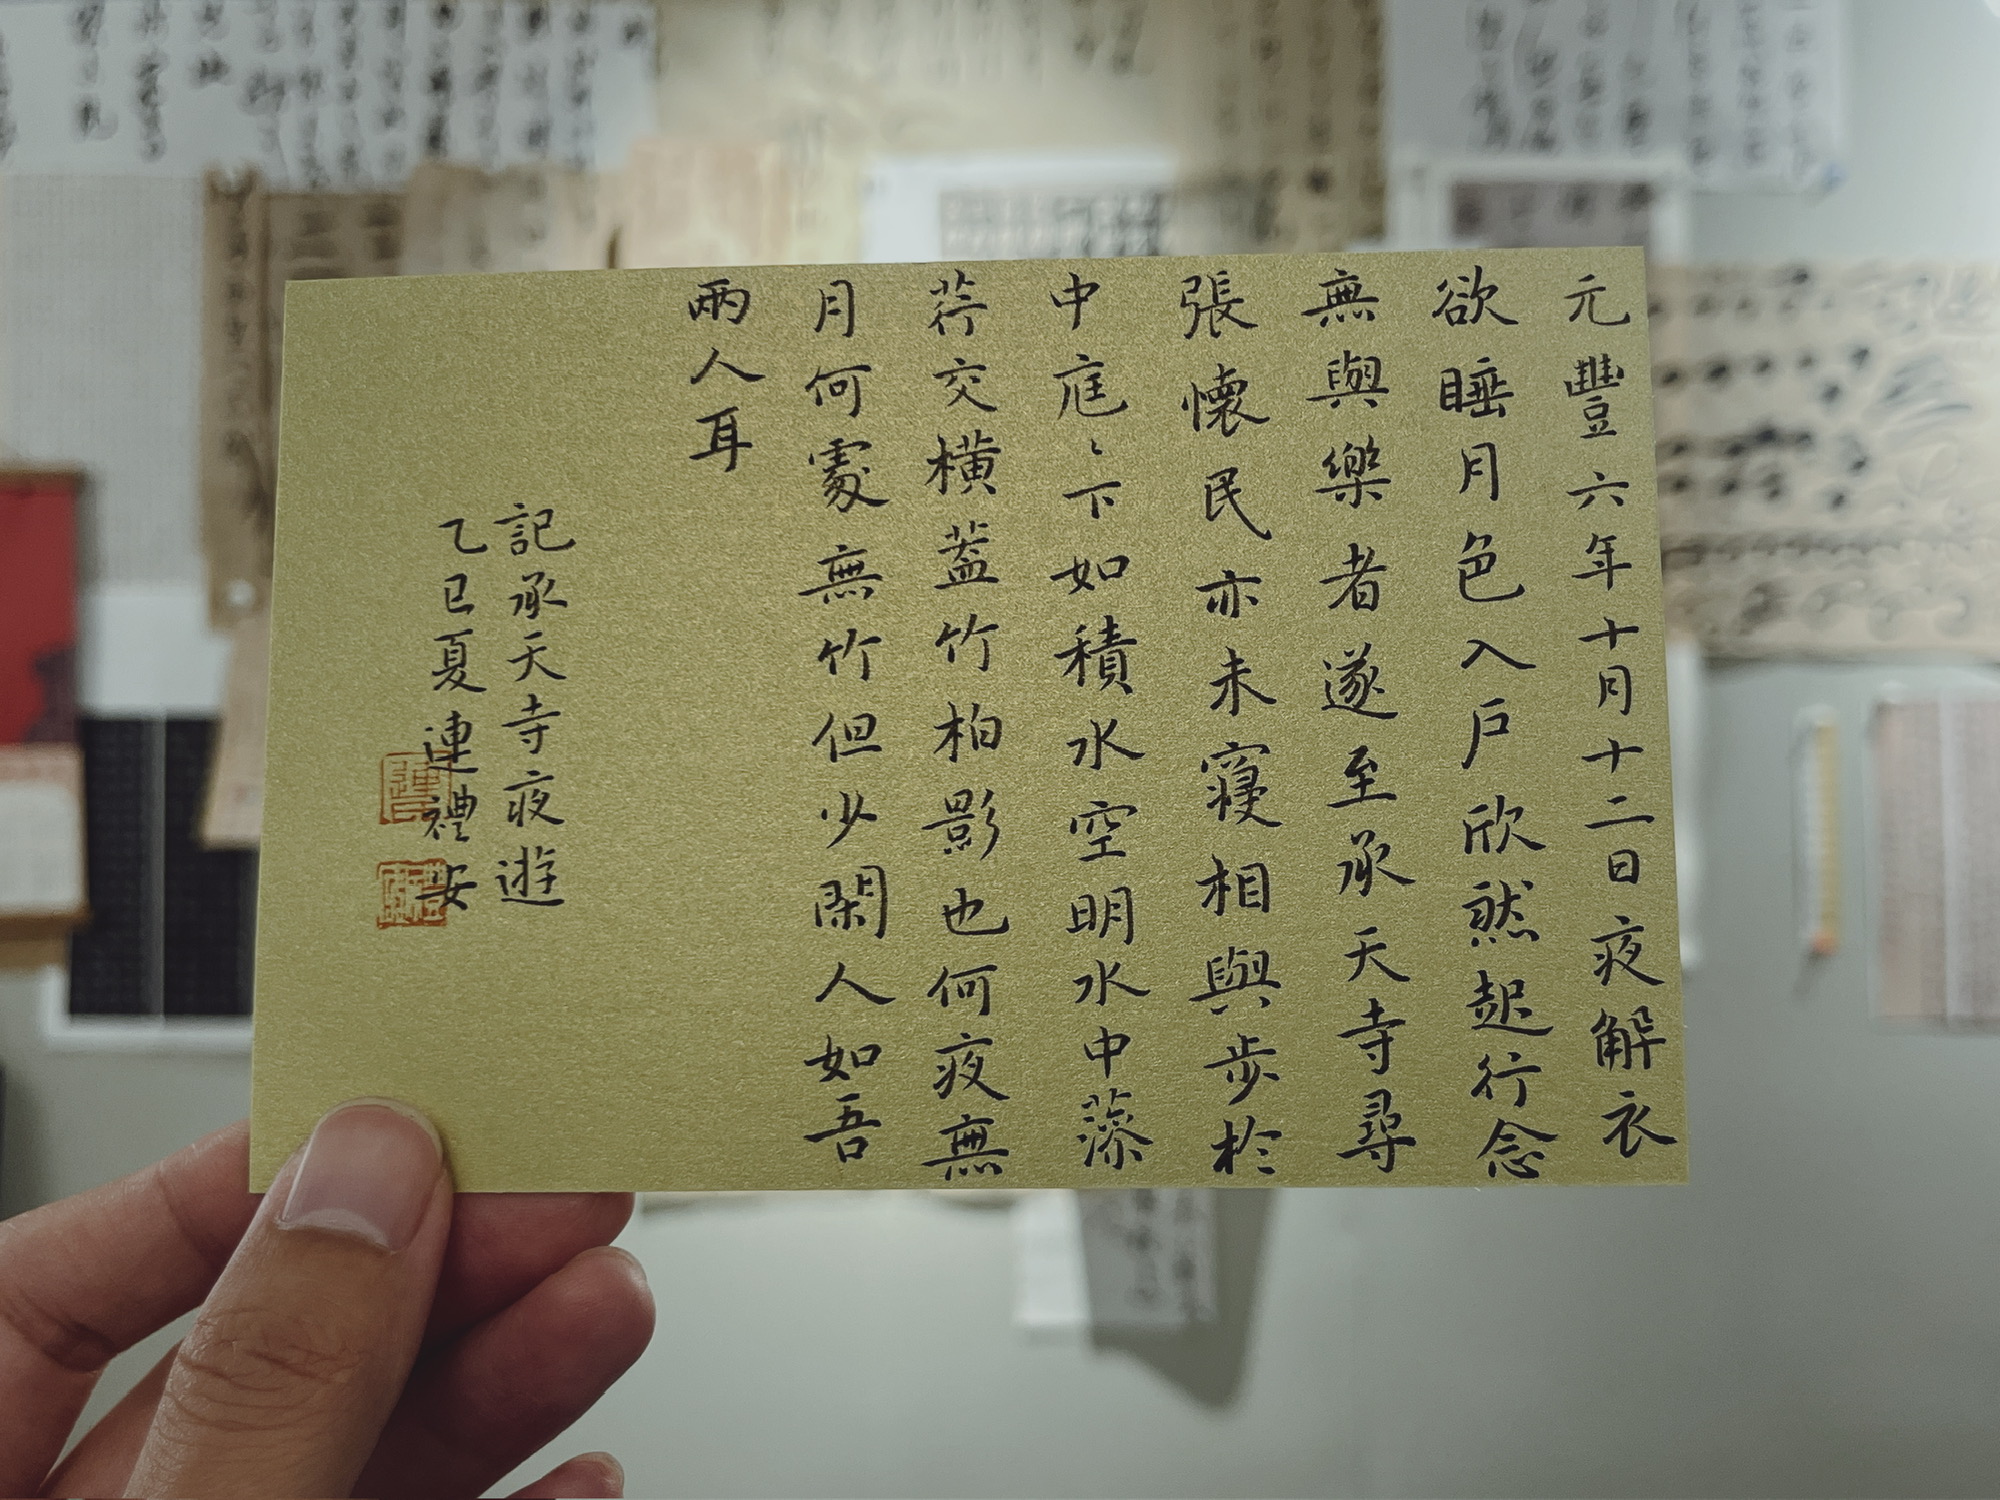 元豐六年十月十二日夜解衣
欲睡月色入戶欣然起行念
無與樂者遂至承天寺尋
張懷民亦未寢相與步於
中庭〻下如積水空明水中藻
荇交橫蓋竹柏影也何夜無
月何處無竹但少閑人如吾
兩人耳
記承天寺夜遊
乙巳夏連禮安